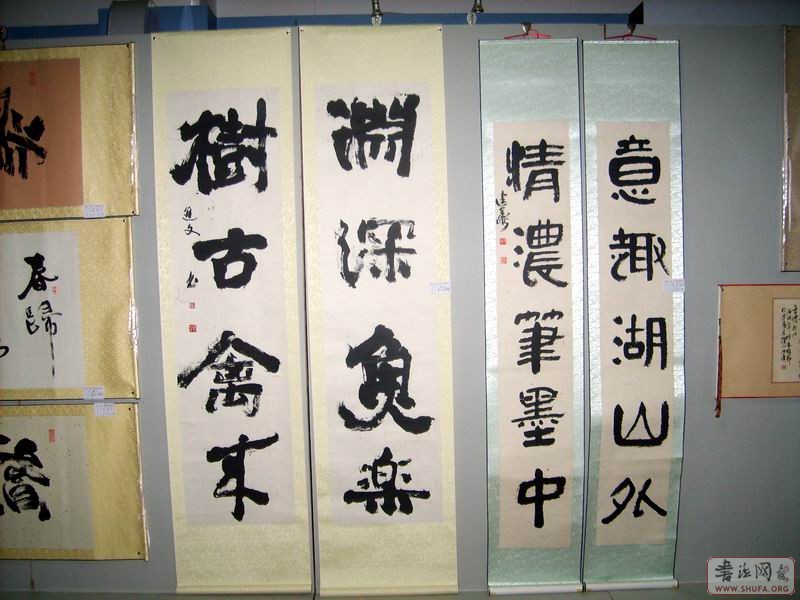 意趣湖山外
情濃筆墨中
建
淵深魚樂
樹古禽來
進文
春歸
書法网
WWW.SHUFA.ORG